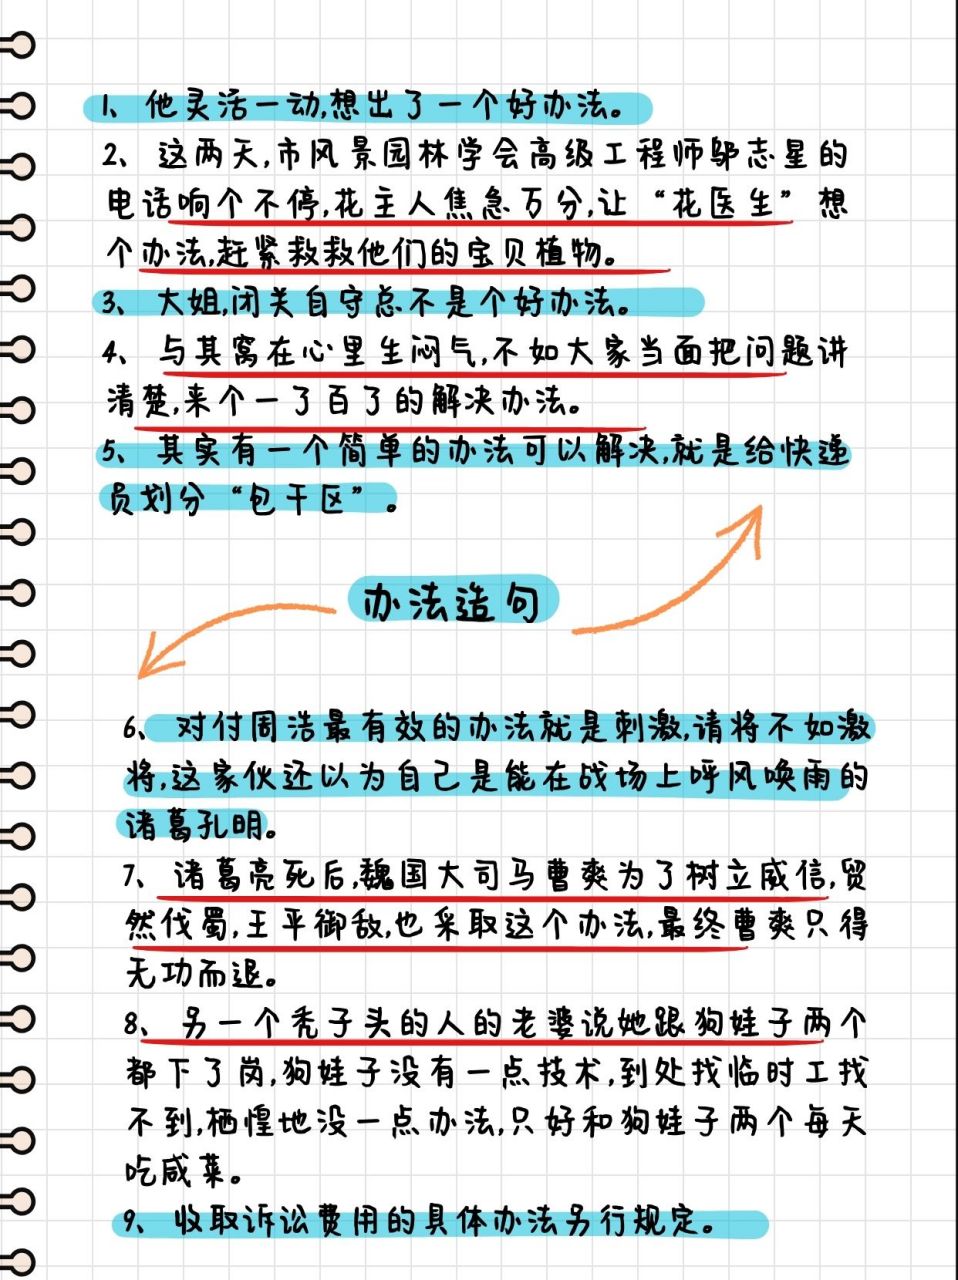 1、他灵活一动,想出了一个好办法。
2、这两天,市风景园林学会高级工程师邬志星的
电话响个不停,花主人焦急万分,让“花医生”想
个办法,赶紧救救他们的宝贝植物。
3、大姐,闭关自守总不是个好办法。
4、与其窝在心里生闷气,不如大家当面把问题讲
清楚,来个一了百了的解决办法。
5、其实有一个简单的办法可以解决,就是给快递
员划分“包干区”。
办法造句
6、对付周浩最有效的办法就是刺激,请将不如激
将,这家伙还以为自己是能在战场上呼风唤雨的
诸葛孔明。
7、诸葛亮死后,魏国大司马曹爽为了树立威信,贸
然伐蜀,王平御敌,也采取这个办法,最终曹爽只得
无功而退。
8、另一个秃子头的人的老婆说她跟狗娃子两个
都下了岗,狗娃子没有一点技术,到处找临时工找
不到,栖惶地没一点办法,只好和狗娃子两个每天
吃咸菜。
9、收取诉讼费用的具体办法另行规定。